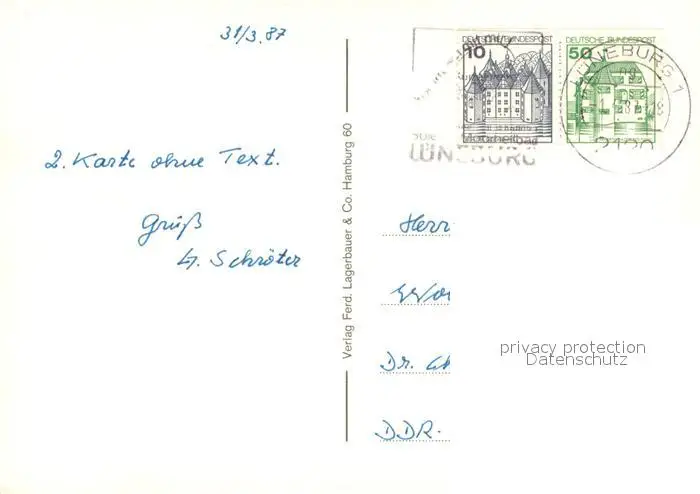 31/3.87
2. Karte ohne Text.
Gruß
H. Schröter
Verlag Ferd. Lagerbauer & Co. Hamburg 60
DEUTSCHE BUNDESPOST
10
DEUTSCHE BUNDESPOST
50
LÜNEBURG 1
2120
LÜNEBURG
Herr
Dr.
DDR.
privacy protection
Datenschutz